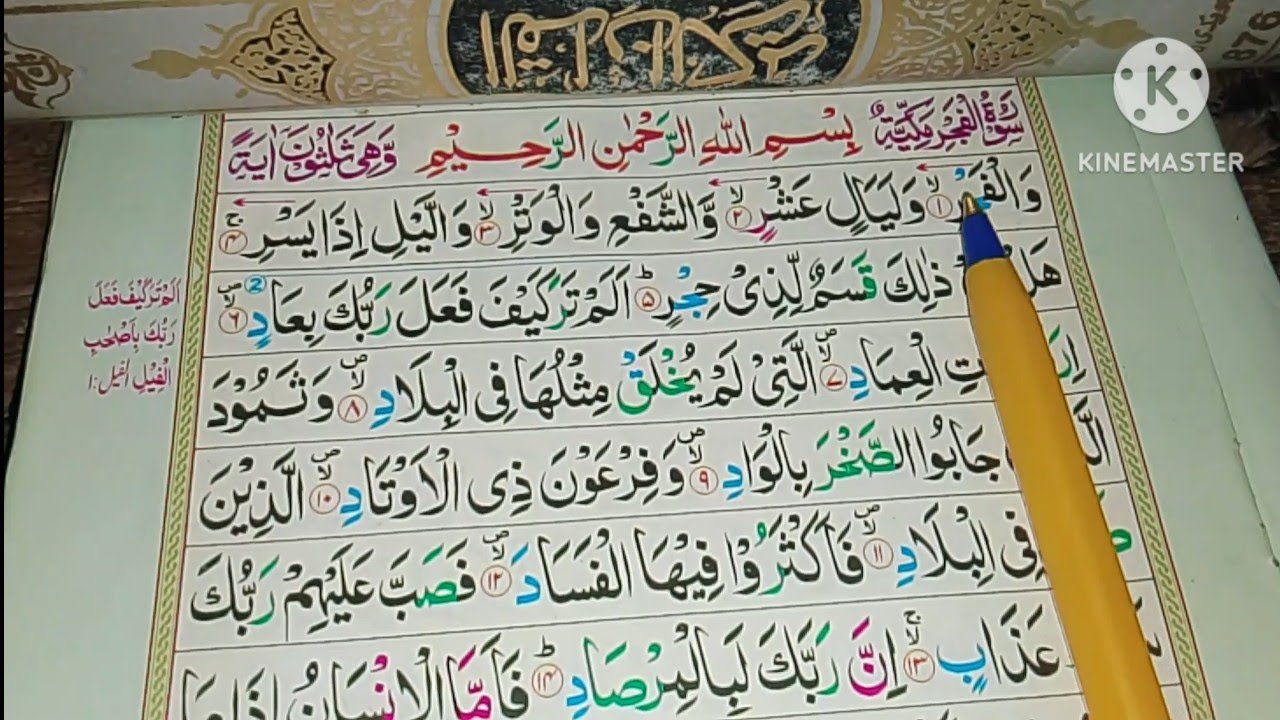 القرآن الكريم
876
KINEMASTER
سُوْرَةُ الْفَجْرِ مَكِّيَّةٌ بِسْمِ اللّٰهِ الرَّحْمٰنِ الرَّحِيْمِ وَّهِىَ ثَلٰثُوْنَ اٰيَةً
وَالْفَجْرِ ۙ﴿۱﴾ وَلَيَالٍ عَشْرٍ ۙ﴿۲﴾ وَّالشَّفْعِ وَالْوَتْرِ ۙ﴿۳﴾ وَالَّيْلِ اِذَا يَسْرِ ۚ﴿۴﴾
هَلْ ذٰلِكَ قَسَمٌ لِّذِىْ حِجْرٍ ؕ﴿۵﴾ اَلَمْ تَرَ كَيْفَ فَعَلَ رَبُّكَ بِعَادٍ ۙ﴿۶﴾
الْعِمَادِ ۙ﴿۷﴾ الَّتِىْ لَمْ يُخْلَقْ مِثْلُهَا فِى الْبِلَادِ ۙ﴿۸﴾ وَثَمُوْدَ
جَابُوا الصَّخْرَ بِالْوَادِ ۙ﴿۹﴾ وَفِرْعَوْنَ ذِى الْاَوْتَادِ ۙ﴿۱۰﴾ الَّذِيْنَ
فِى الْبِلَادِ ۙ﴿۱۱﴾ فَاَكْثَرُوْا فِيْهَا الْفَسَادَ ۙ﴿۱۲﴾ فَصَبَّ عَلَيْهِمْ رَبُّكَ
عَذَابٍ ۙۚ﴿۱۳﴾ اِنَّ رَبَّكَ لَبِالْمِرْصَادِ ؕ﴿۱۴﴾ فَاَمَّا الْاِنْسَانُ اِذَا مَا
اَلَمْ تَرَ كَيْفَ فَعَلَ
رَبُّكَ بِاَصْحٰبِ
الْفِيْلِ الفیل:۱